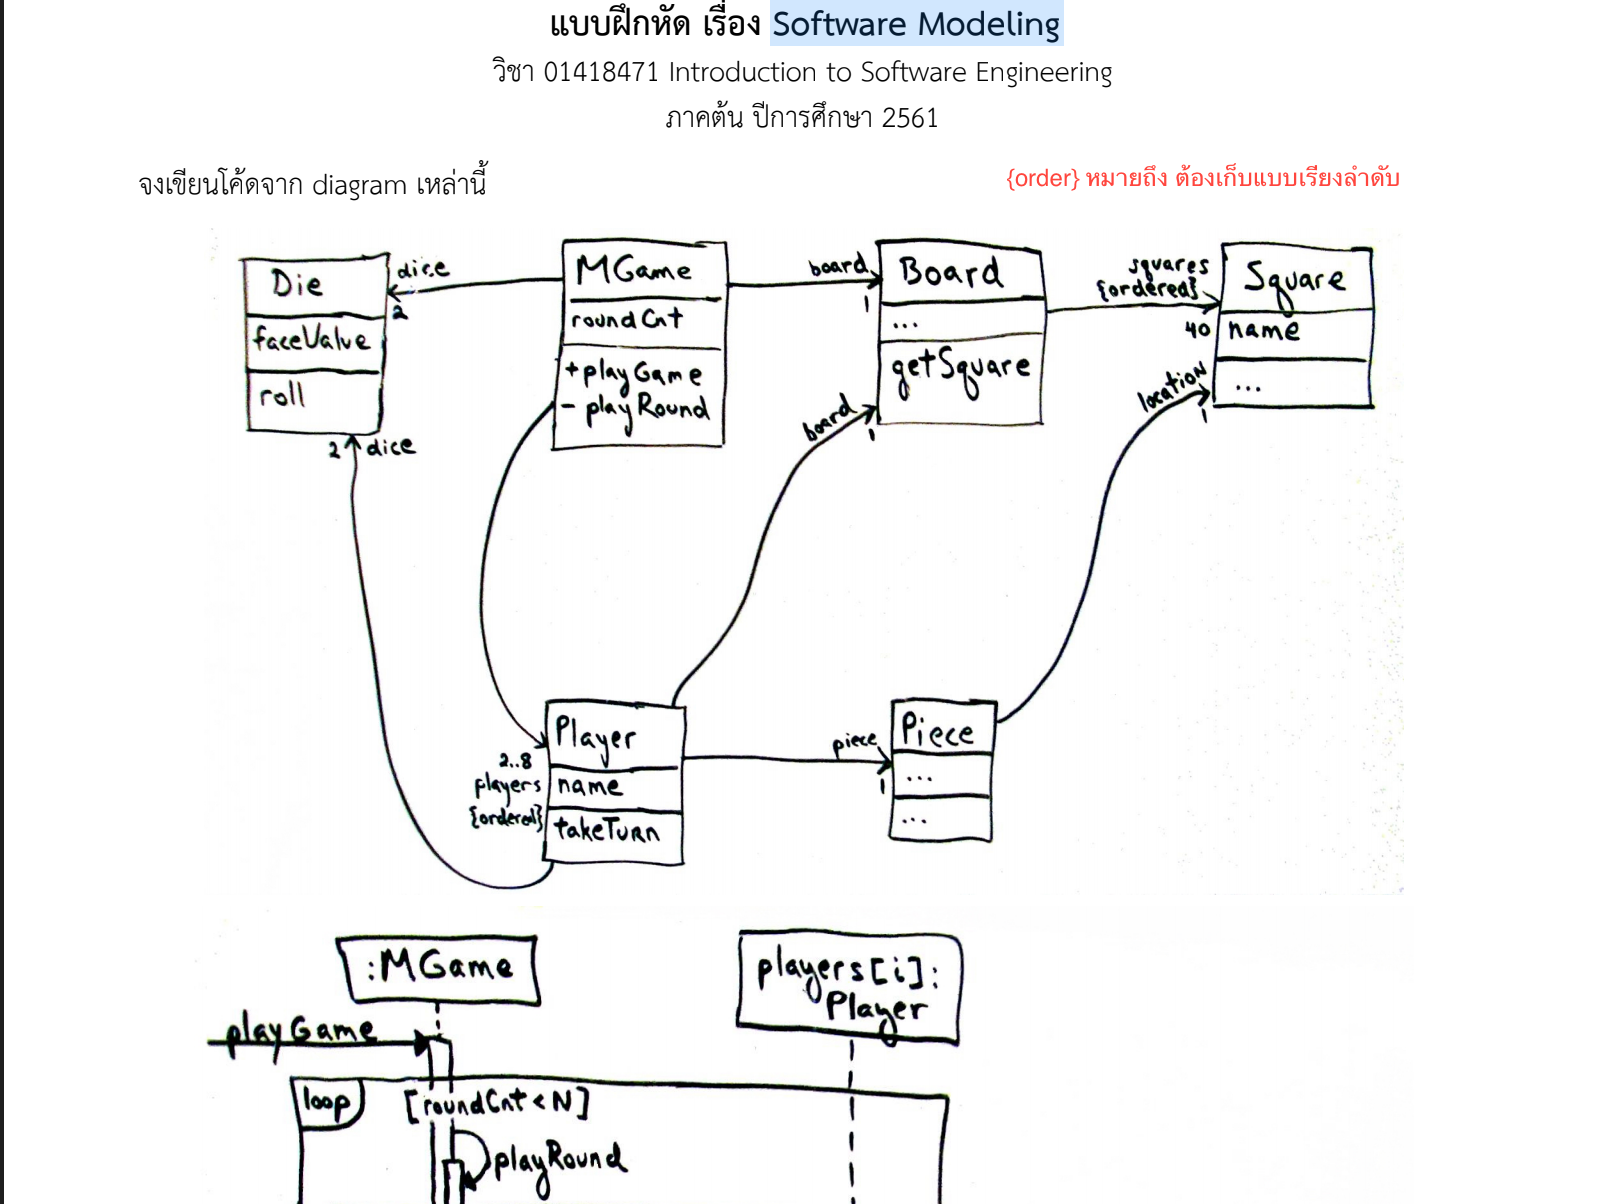 แบบฝึกหัด เรื่อง Software Modeling
วิชา 01418471 Introduction to Software Engineering
ภาคต้น ปีการศึกษา 2561
จงเขียนโค้ดจาก diagram เหล่านี้
{order} หมายถึง ต้องเก็บแบบเรียงลำดับ
Die
faceValue
roll
dice
2
2
dice
MGame
roundCnt
+playGame
- playRound
board
1
Board
...
getSquare
board
1
squares
{ordered}
40
Square
name
...
location
1
2..8
players
{ordered}
Player
name
takeTurn
piece
1
Piece
...
...
:MGame
players[i]:
Player
playGame
loop
[roundCnt < N]
playRound